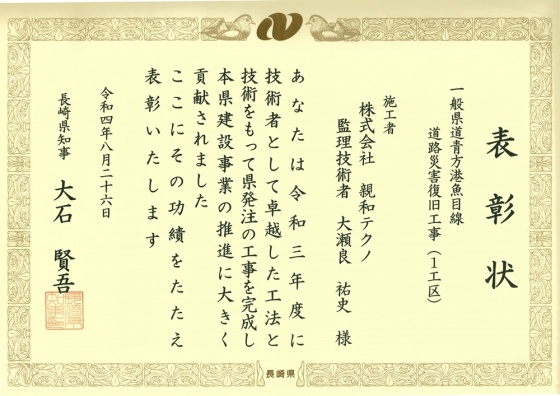 表彰状
一般県道青方港魚目線
道路災害復旧工事（１工区）
施工者
株式会社 親和テクノ
監理技術者 大瀬良 祐史 様
あなたは令和三年度に
技術者として卓越した工法と
技術をもって県発注の工事を完成し
本県建設事業の推進に大きく
貢献されました
ここにその功績をたたえ
表彰いたします
令和四年八月二十六日
長崎県知事 大石 賢吾
長崎県